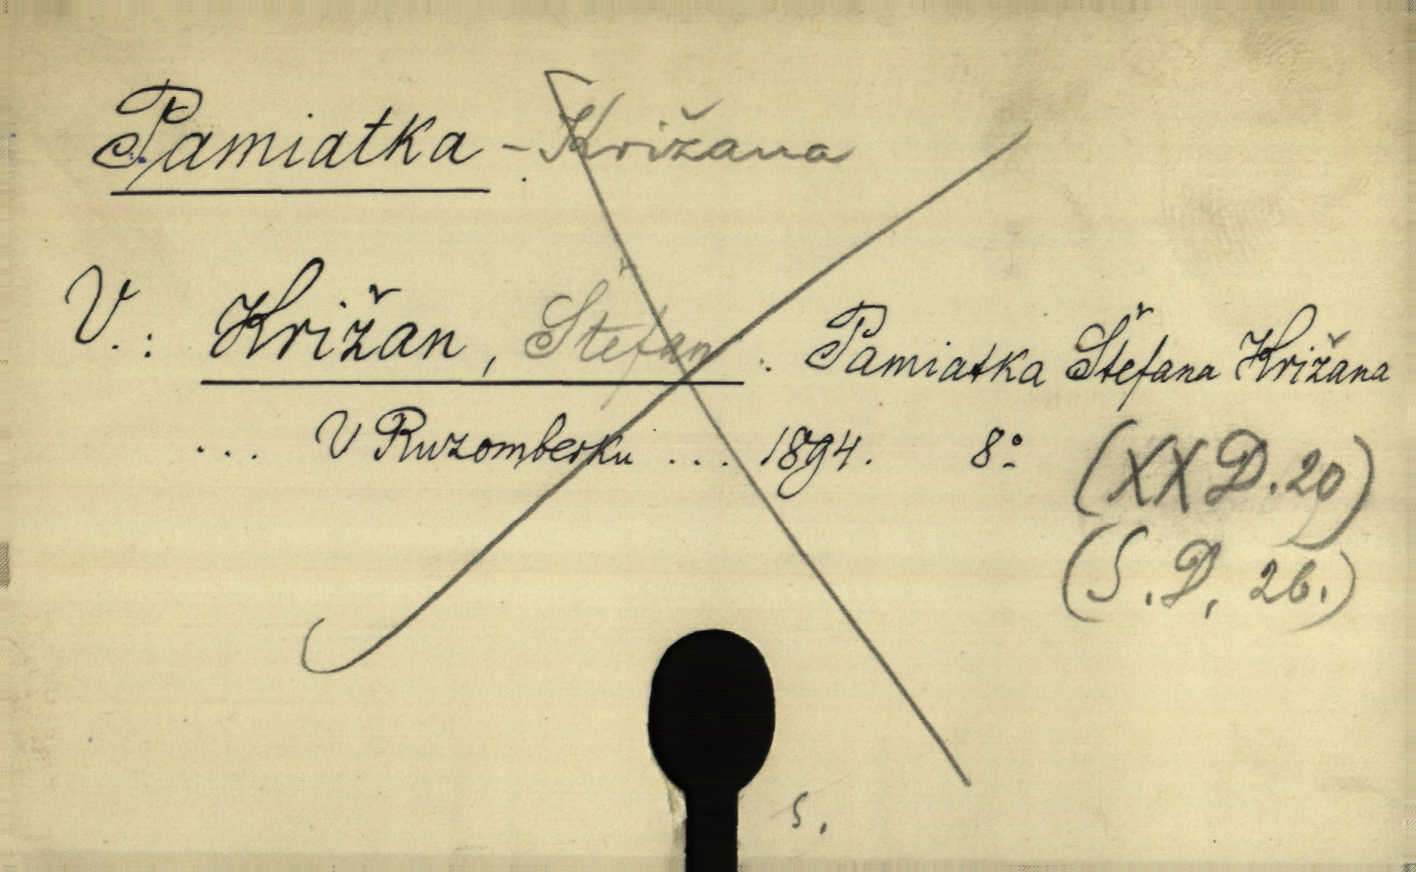 Pamiatka - Križana
V.: Križan, Štefan. Pamiatka Štefana Križana
... V Ruzomberku ... 1894. 8°
(XX D. 20)
(S. D, 26.)
S.